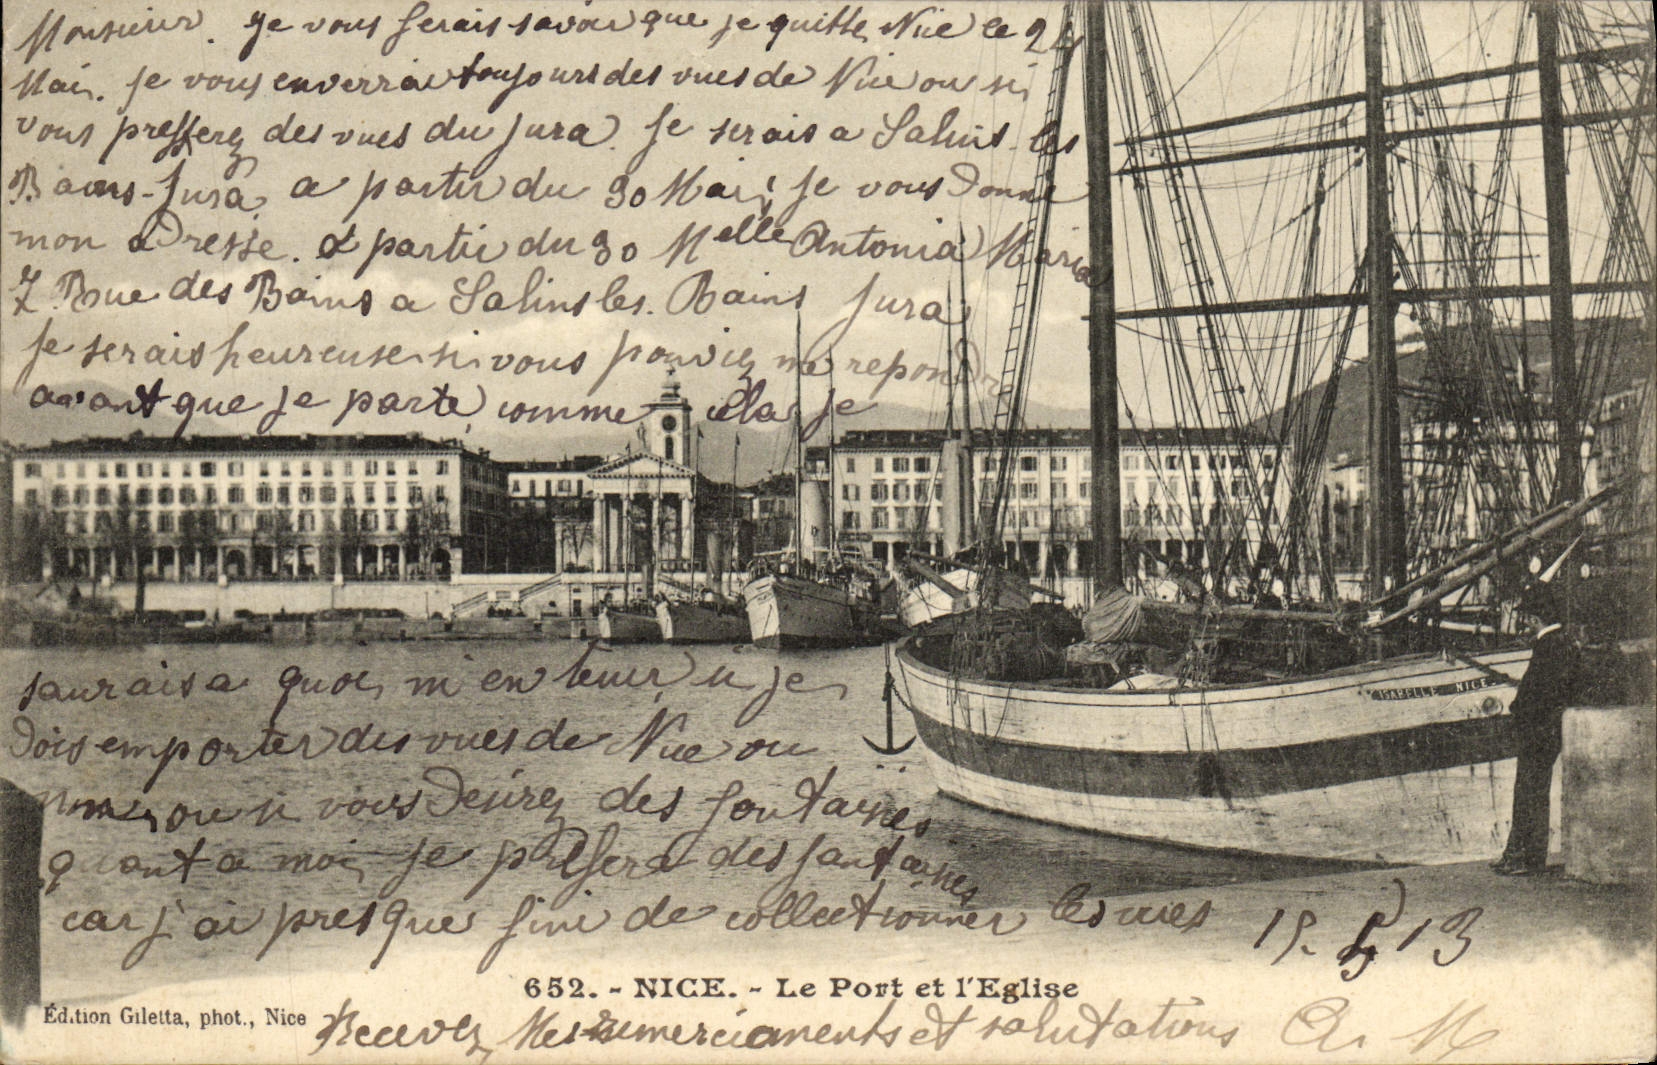 Monsieur. Je vous serais savoir que je quitte Nice le 24
Mai. Je vous enverrai toujours des vues de Nice ou si
vous prefferez des vues du Jura. Je serais a Salins-les
Bains-Jura, a partir du 30 Mai, Je vous donne
mon adresse. a partir du 30 Melle Antonia Maria
7 Rue des Bains a Salins les. Bains Jura
Je serais heureuse si vous pouviez me repondre
avant que je parte, comme cela je
saurais a quoi m'en tenir si je
dois emporter des vues de Nice ou
non, ou si vous desirez des fontaines
quant a moi je presfera des fantaisies
car j'ai presque fini de collectionner les vues 15. 5 13
ISABELLE NICE.
652. - NICE. - Le Port et l'Eglise
Édition Giletta, phot., Nice
Recevez Mes remerciements et salutations A. M